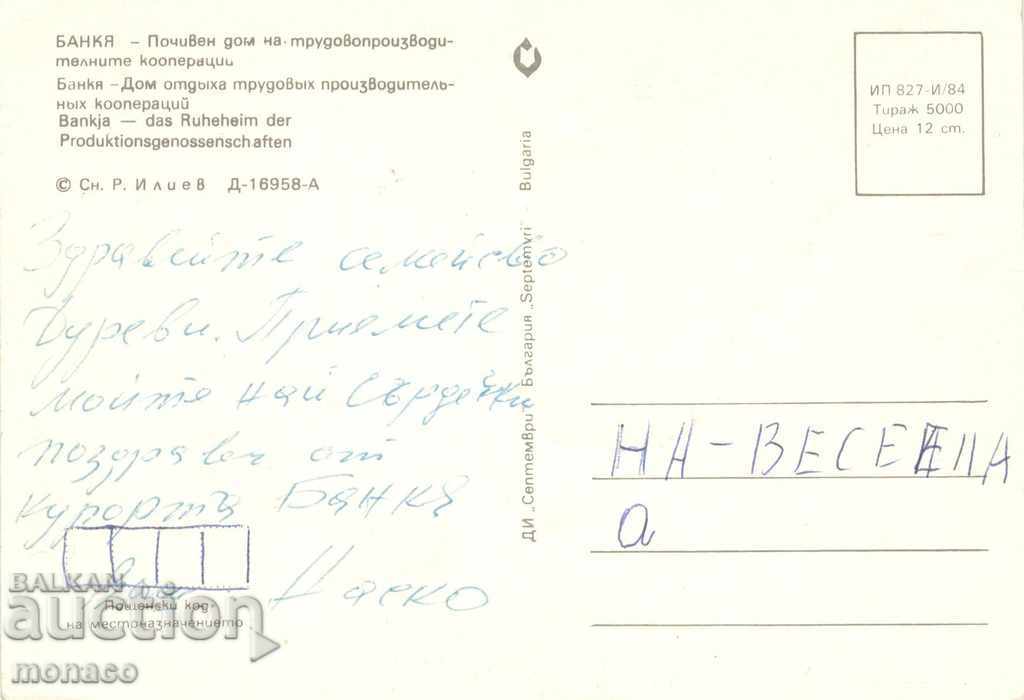 БАНКЯ – Почивен дом на трудовопроизводи-
телните кооперации
Банкя – Дом отдыха трудовых производитель-
ных коопераций
Bankja — das Ruheheim der
Produktionsgenossenschaften
© Сн. Р. Илиев Д-16958-А
ИП 827-И/84
Тираж 5000
Цена 12 ст.
ДИ „Септември" България „Septemvri" Bulgaria
Здравейте семейство
Гуреви. Приемете
моите най сърдечни
поздрави от
курорта Банкя
Наско
НА-ВЕСЕЛА
а
Пощенски код
на местоназначението
BALKAN
auction
monaco